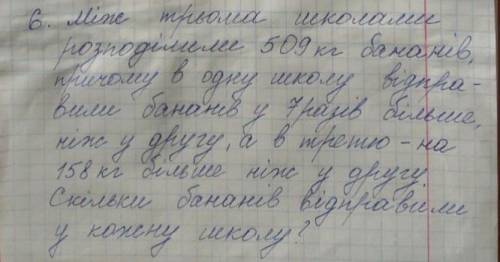 6. Між трьома школами
розподілили 509 кг бананів,
причому в одну школу відпра-
вили бананів у 7 разів більше,
ніж у другу, а в третю - на
158 кг більше ніж у другу
Скільки бананів відправили
у кожну школу?